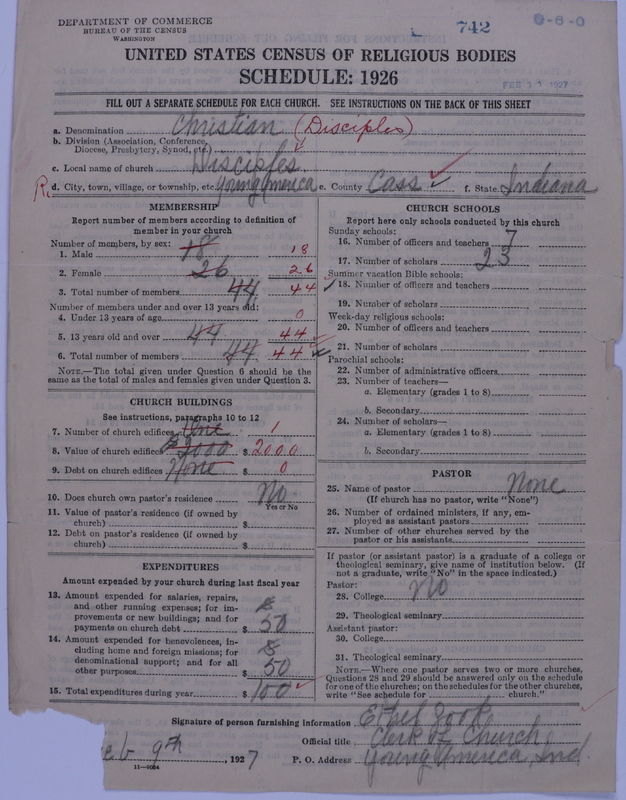 DEPARTMENT OF COMMERCE
BUREAU OF THE CENSUS
WASHINGTON
742
0-6-0
UNITED STATES CENSUS OF RELIGIOUS BODIES
SCHEDULE: 1926
FEB 11 1927
FILL OUT A SEPARATE SCHEDULE FOR EACH CHURCH. SEE INSTRUCTIONS ON THE BACK OF THIS SHEET
a. Denomination Christian (Disciples)
b. Division (Association, Conference, Diocese, Presbytery, Synod, etc.)
c. Local name of church Disciples
d. City, town, village, or township, etc. Young America e. County Cass f. State Indiana
MEMBERSHIP
Report number of members according to definition of
member in your church
Number of members, by sex:
1. Male 18 18
2. Female 26 26
3. Total number of members 44 44
Number of members under and over 13 years old:
4. Under 13 years of age 0
5. 13 years old and over 44 44
6. Total number of members 44 44
NOTE.—The total given under Question 6 should be
the same as the total of males and females given under Question 3.
CHURCH BUILDINGS
See instructions, paragraphs 10 to 12
7. Number of church edifices One 1
8. Value of church edifices $2000 $2000
9. Debt on church edifices None $0
10. Does church own pastor's residence No
Yes or No
11. Value of pastor's residence (if owned by
church) $
12. Debt on pastor's residence (if owned by
church) $
EXPENDITURES
Amount expended by your church during last fiscal year
13. Amount expended for salaries, repairs,
and other running expenses; for im-
provements or new buildings; and for
payments on church debt $ 50
14. Amount expended for benevolences, in-
cluding home and foreign missions; for
denominational support; and for all
other purposes $ 50
15. Total expenditures during year $100
CHURCH SCHOOLS
Report here only schools conducted by this church
Sunday schools:
16. Number of officers and teachers 7
17. Number of scholars 23
Summer vacation Bible schools:
18. Number of officers and teachers
19. Number of scholars
Week-day religious schools:
20. Number of officers and teachers
21. Number of scholars
Parochial schools:
22. Number of administrative officers
23. Number of teachers—
a. Elementary (grades 1 to 8)
b. Secondary
24. Number of scholars—
a. Elementary (grades 1 to 8)
b. Secondary
PASTOR
25. Name of pastor None
(If church has no pastor, write "None")
26. Number of ordained ministers, if any, em-
ployed as assistant pastors
27. Number of other churches served by the
pastor or his assistants
If pastor (or assistant pastor) is a graduate of a college or
theological seminary, give name of institution below. (If
not a graduate, write "No" in the space indicated.)
Pastor:
28. College No
29. Theological seminary
Assistant pastor:
30. College
31. Theological seminary
NOTE.—Where one pastor serves two or more churches,
Questions 28 and 29 should be answered only on the schedule
for one of the churches; on the schedules for the other churches,
write "See schedule for church."
Signature of person furnishing information Ethel Zook
Official title Clerk of Church
eb 9th, 1927 P. O. Address Young America, Ind.
11—9064